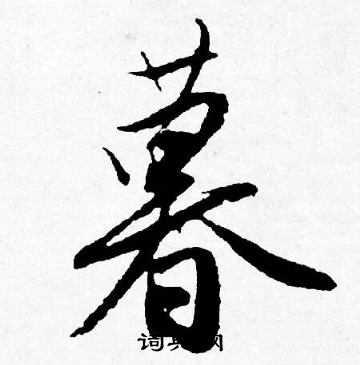 暮
词典网